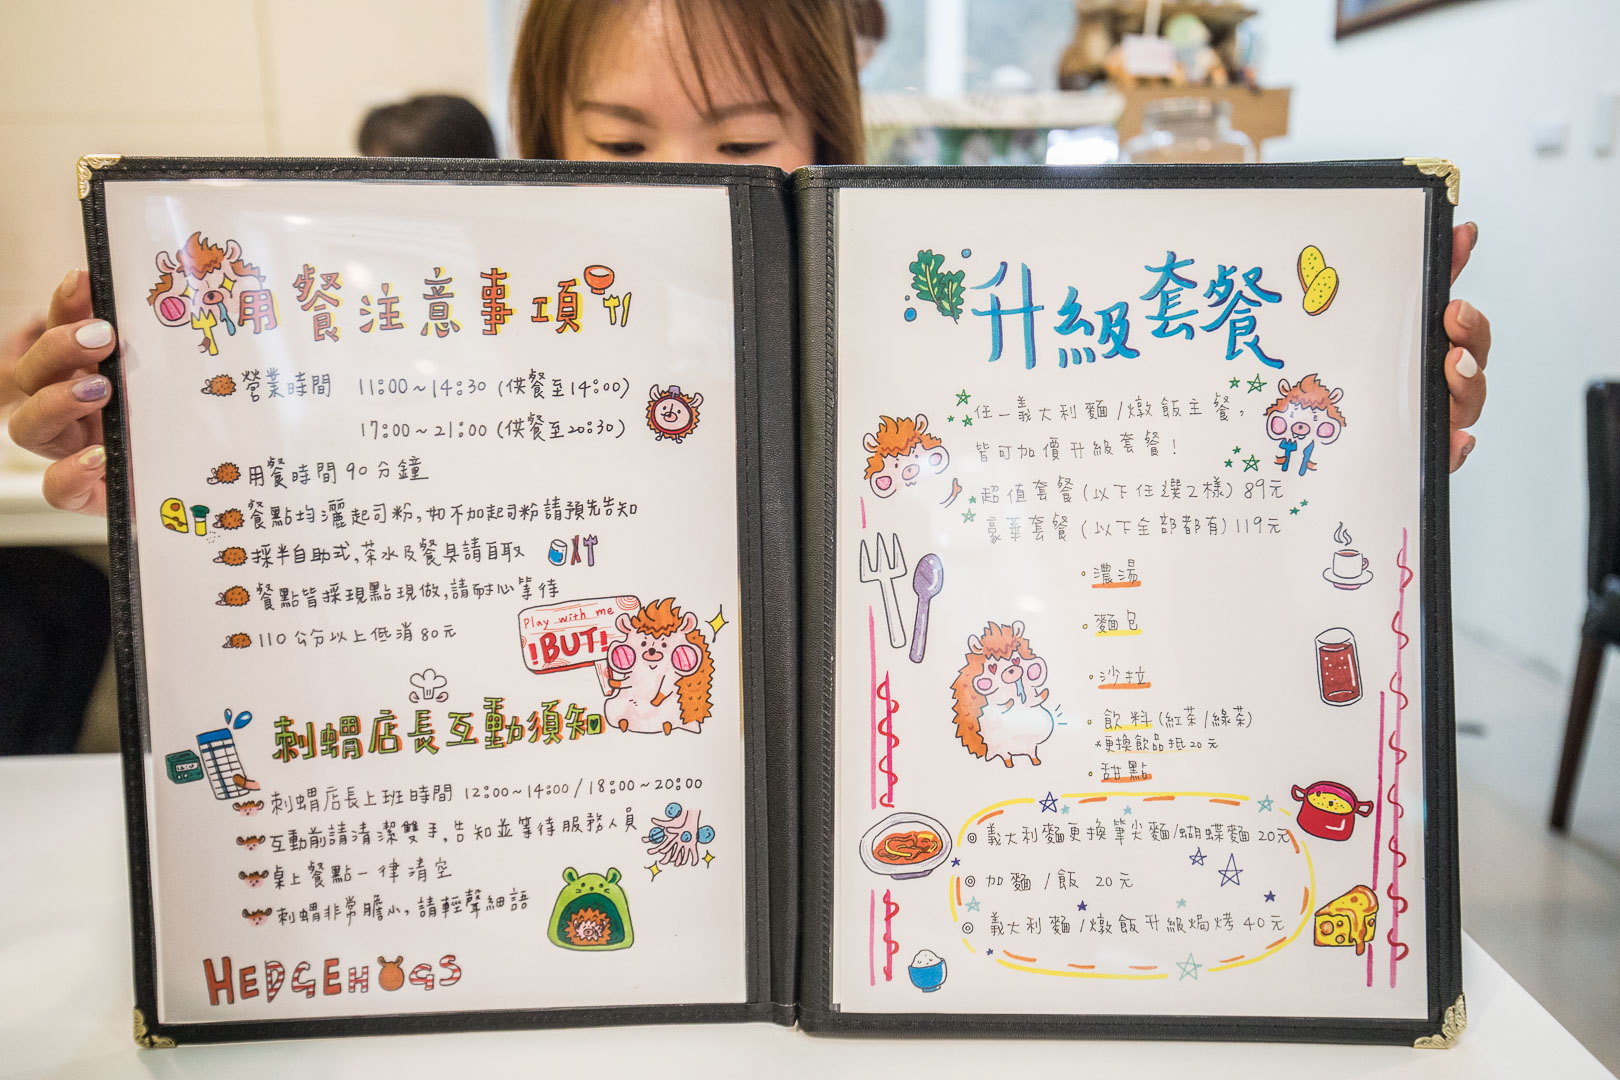 用餐注意事項
營業時間 11:00~14:30 (供餐至14:00)
17:00~21:00 (供餐至20:30)
用餐時間90分鐘
餐點均灑起司粉,如不加起司粉請預先告知
採半自助式,茶水及餐具請自取
餐點皆採現點現做,請耐心等待
110公分以上低消80元
Play with me
!BUT!
刺蝟店長互動須知
刺蝟店長上班時間 12:00~14:00/18:00~20:00
互動前請清潔雙手,告知並等待服務人員
桌上餐點一律清空
刺蝟非常膽小,請輕聲細語
HEDGEHOGS
升級套餐
任一義大利麵/燉飯主餐,
皆可加價升級套餐!
超值套餐(以下任選2樣) 89元
豪華套餐(以下全部都有) 119元
·濃湯
·麵包
·沙拉
·飲料(紅茶/綠茶)
*更換飲品抵20元
·甜點
◎義大利麵更換筆尖麵/蝴蝶麵 20元
◎加麵/飯 20元
◎義大利麵/燉飯升級焗烤 40元